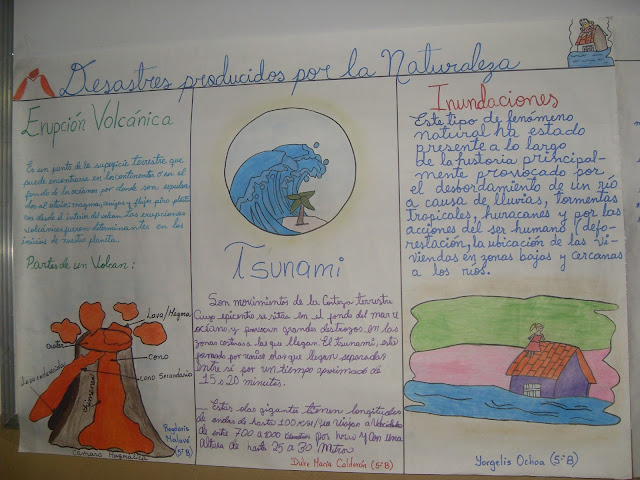 Desastres producidos por la Naturaleza
Erupción Volcánica
Es un punto de la superficie terrestre que
puede encontrarse en los continentes o en el
fondo de los océanos por donde son expulsa-
dos al exterior, magma,
desde el interior del volcan. Las erupciones
volcánicas fueron determinantes en los
inicios de nuestro planeta.
Partes de un Volcan:
Lava/Magma
Crater
Cono
Cono Secundario
Chimenea
Camara Magmatica
Rosdaris
Malavé
(5ºB)
Tsunami
Son movimientos de la Corteza terrestre
Cuyo epicentro se sitúa en el fondo del mar u
océano y provocan grandes destrozos en las
zonas costeras a las que llegan. El tsunami, esta
formado por varias olas que llegan separadas
entre si por un tiempo aproximado de
15 a 20 minutos.
Estas olas gigantes tienen longitudes
de ondas de hasta 100 Km/ se viajan a Velocidades
de entre 700 a 1000 por hora y Con una
Altura de hasta 25 a 30 Metros
Dulce María Calderón (5ºB)
Inundaciones
Este tipo de fenómeno
natural ha estado
presente a lo largo
de la historia principal-
mente provocado por
el desbordamiento de un río
a causa de lluvias, tormentas
tropicales, huracanes y por las
acciones del ser humano (defo-
restación, la ubicación de las vi-
viendas en zonas bajas y cercanas
a los ríos.
Yorgelis Ochoa (5ºB)